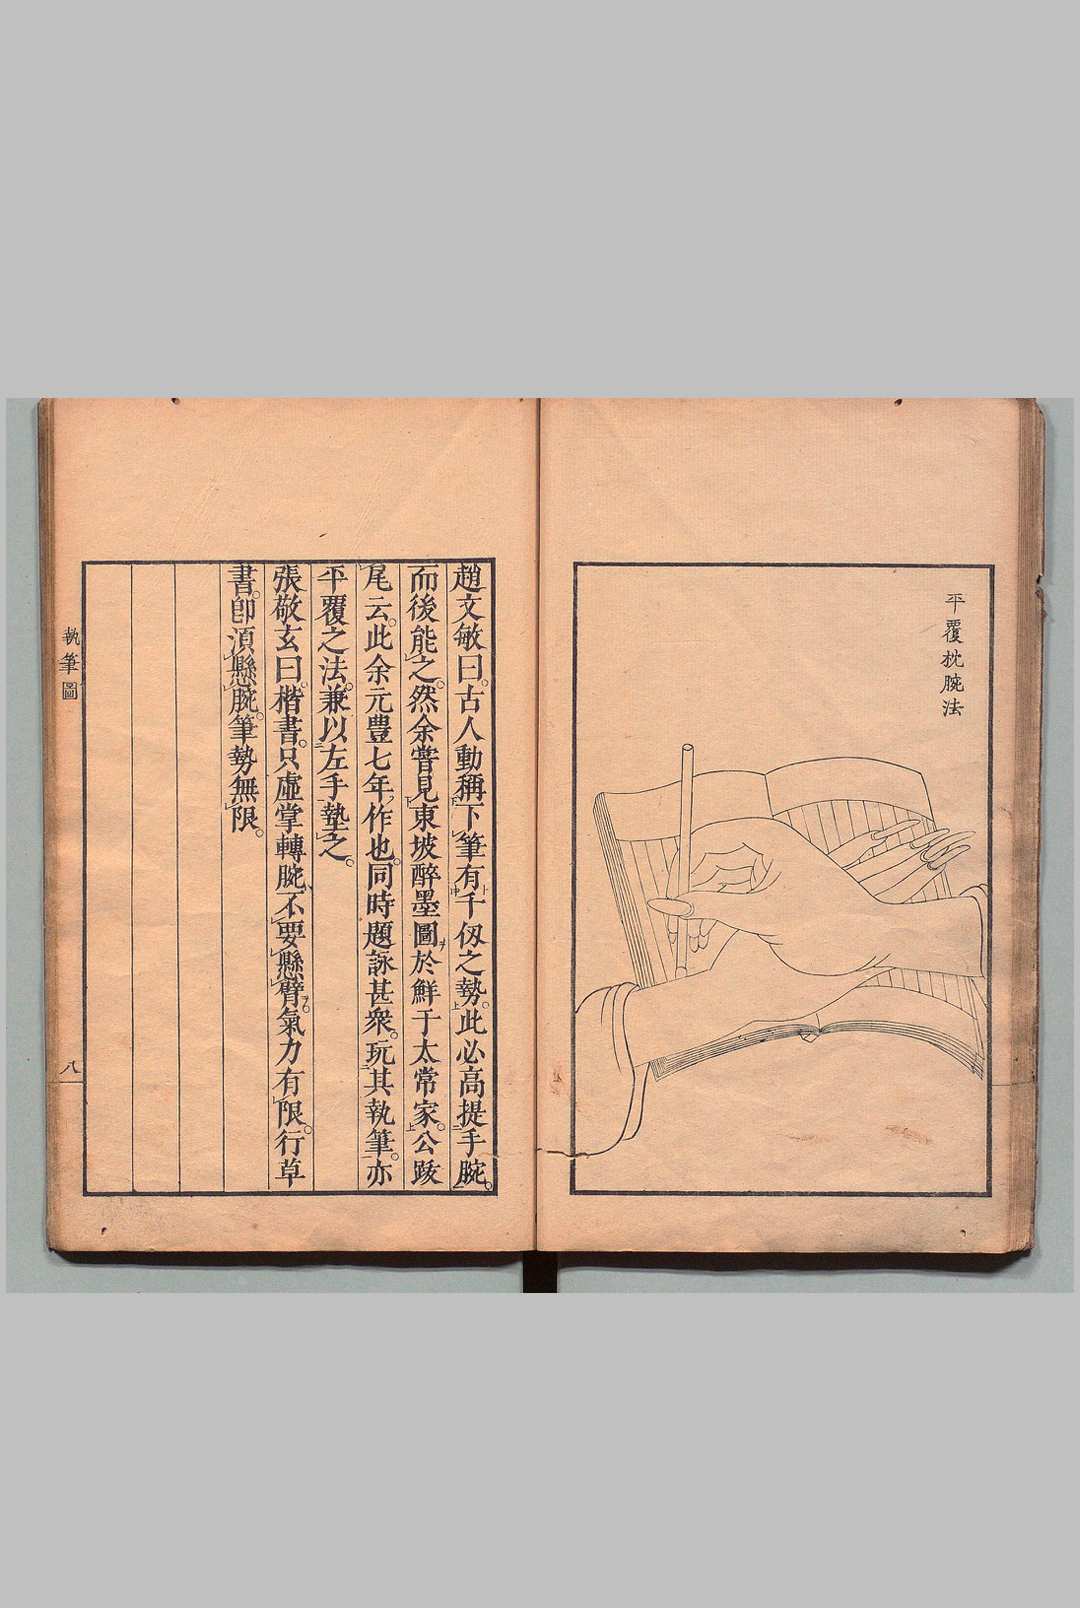 平覆枕腕法
趙文敏曰。古人動稱下筆有千仭之勢。此必高提手腕。
而後能之。然余嘗見東坡醉墨圖於鮮于太常家。公跋
尾云。此余元豊七年作也。同時題詠甚衆。玩其執筆。亦
平覆之法。兼以左手墊之。
張敬玄曰。楷書。只虛掌轉腕、不要懸臂。氣力有限。行草
書。卽須懸腕。筆勢無限。
執筆圖
八